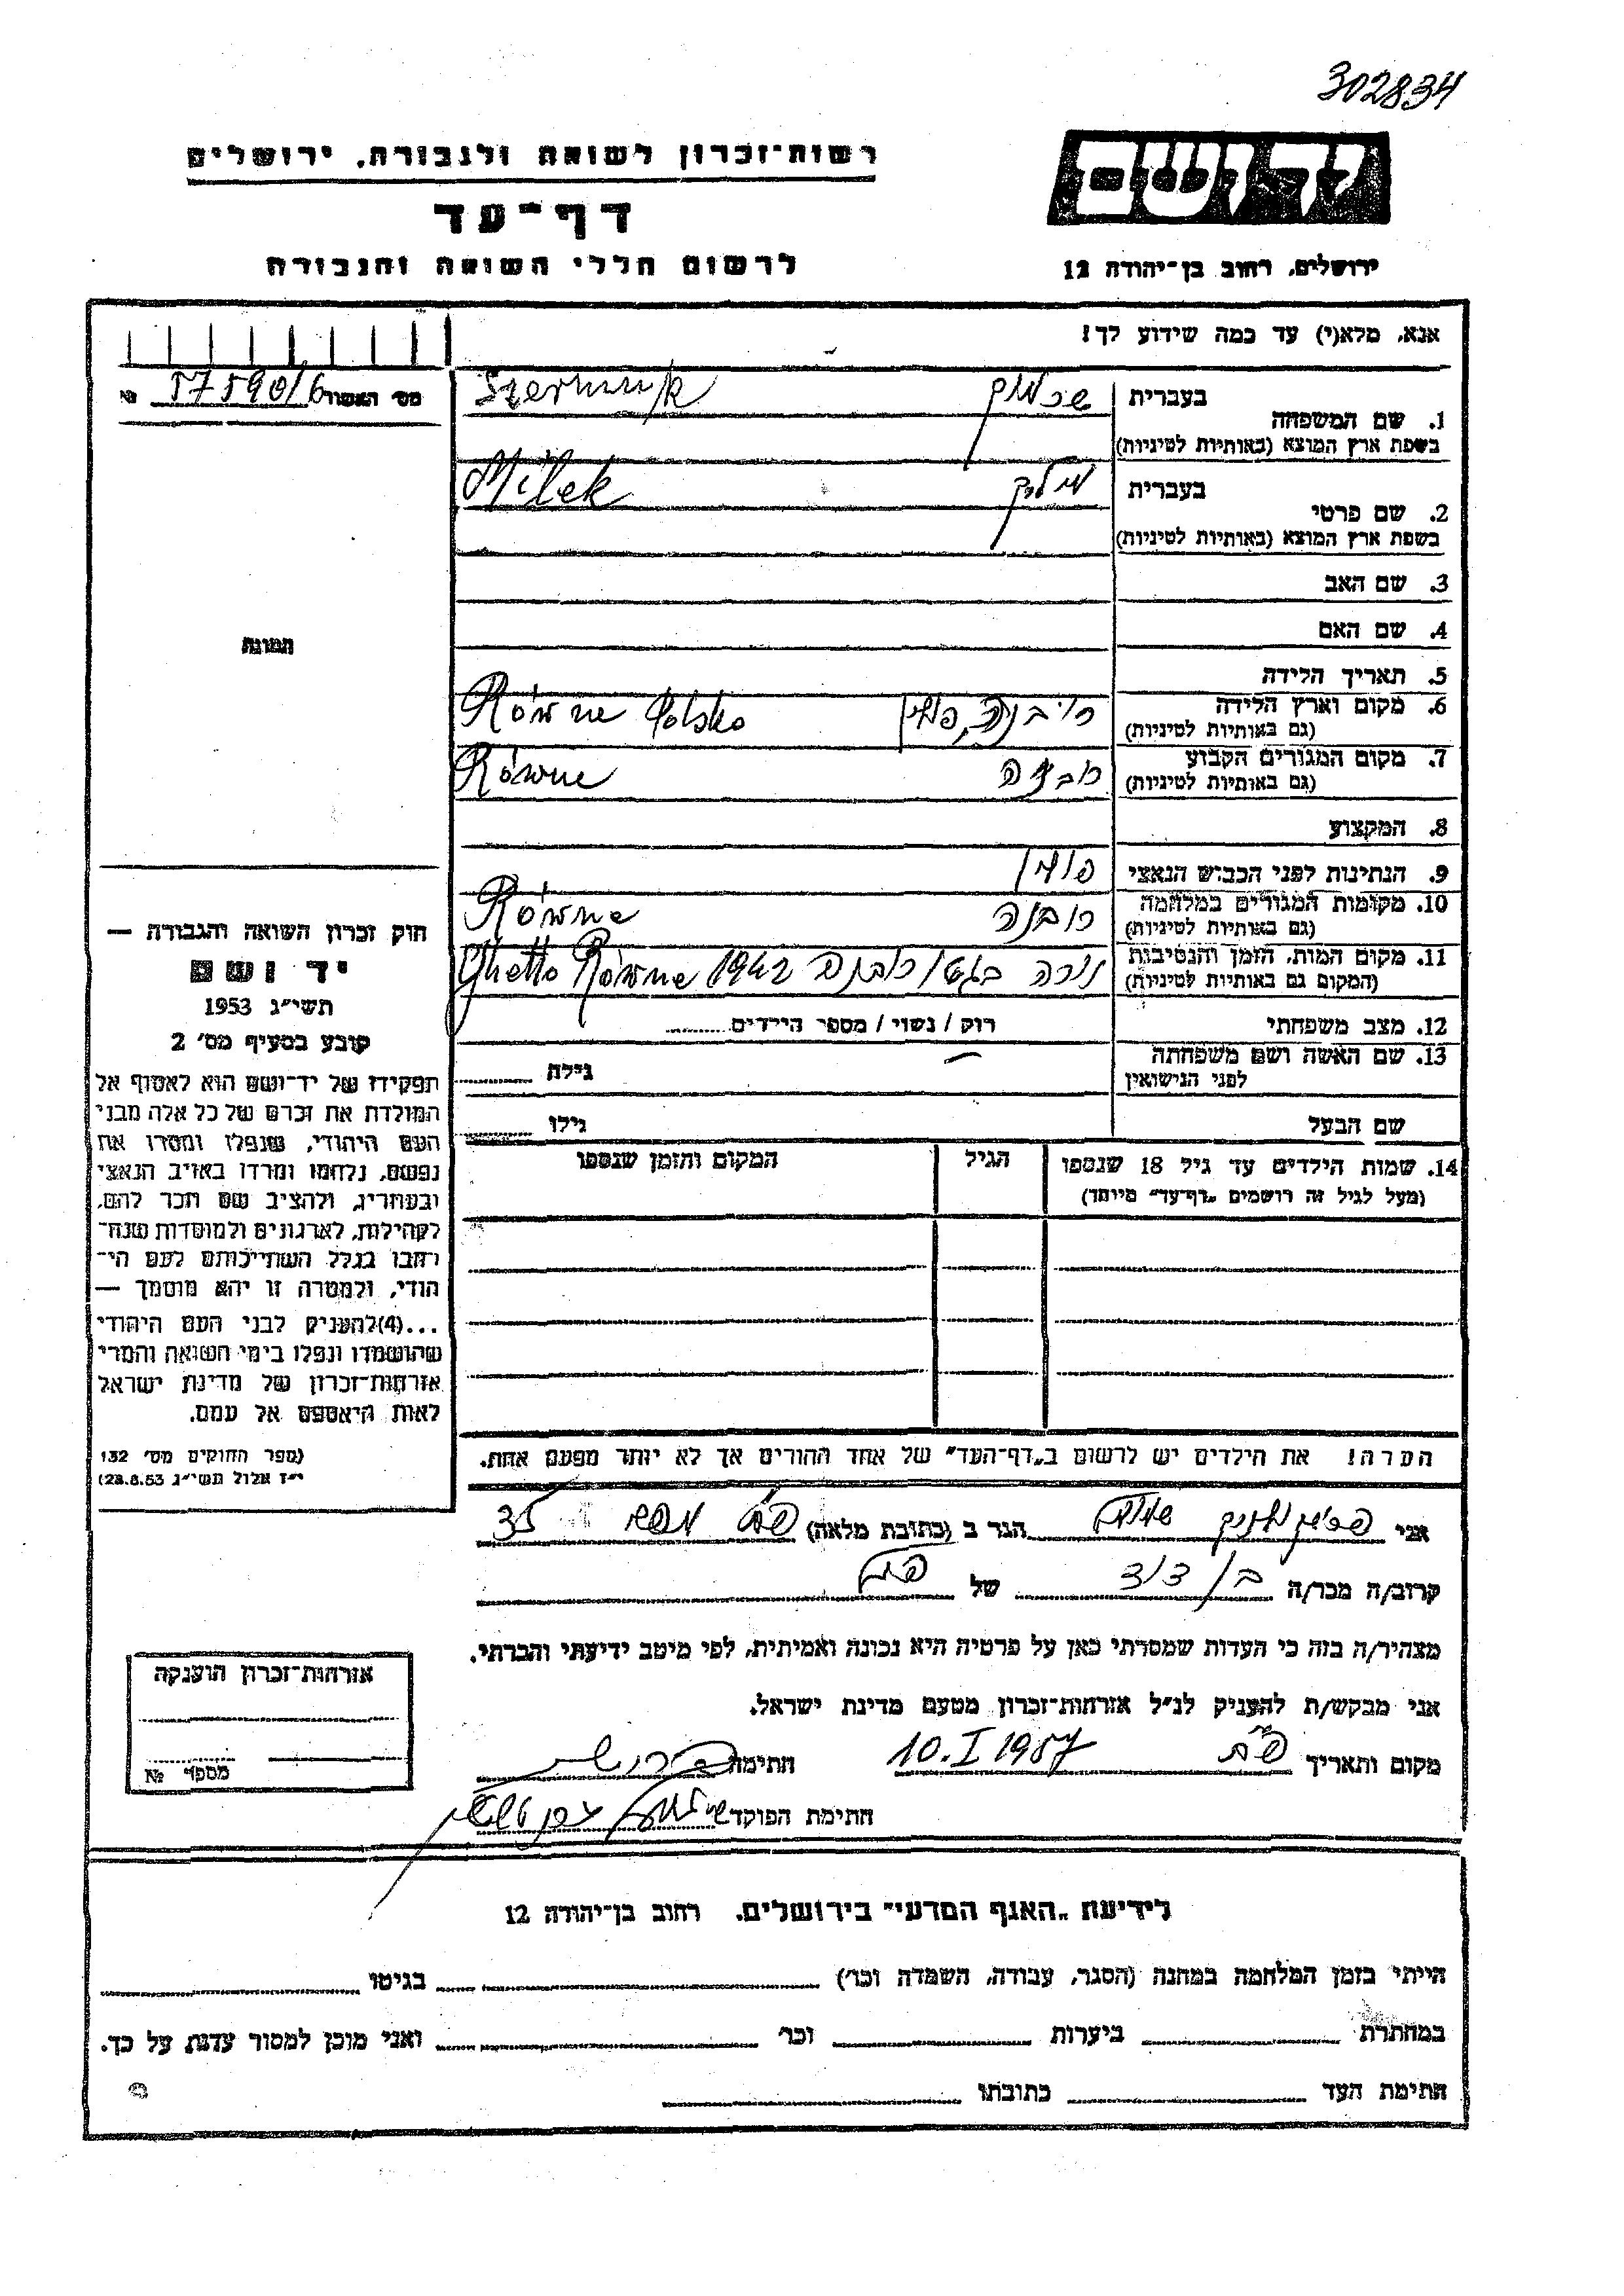 302834
יד ושם
רשות־זכרון לשואה ולגבורה, ירושלים
דף־עד
ירושלים, רחוב בן־יהודה 12
לרשום חללי השואה והגבורה
אנא, מלא(י) עד כמה שידוע לך!
מס' האשור 57590/6 №
1. שם המשפחה
בעברית
Szermuk
בשפת ארץ המוצא (באותיות לטיניות)
2. שם פרטי
בעברית מילק
Milek
בשפת ארץ המוצא (באותיות לטיניות)
3. שם האב
4. שם האם
תמונה
5. תאריך הלידה
6. מקום וארץ הלידה
(גם באותיות לטיניות)
רובנה, פולין Równe Polska
7. מקום המגורים הקבוע
(גם באותיות לטיניות)
רובנה Równe
8. המקצוע
9. הנתינות לפני הכבוש הנאצי
10. מקומות המגורים במלחמה
(גם באותיות לטיניות)
רובנה Równe
11. מקום המות, הזמן והנסיבות
(המקום גם באותיות לטיניות)
בגטו רובנה 1942 Ghetto Równe
12. מצב משפחתי רוק / נשוי / מספר הילדים
13. שם האשה ושם משפחתה
לפני הנישואין
גילה
שם הבעל גילו
14. שמות הילדים עד גיל 18 שנספו
(מעל לגיל זה רושמים „דף־עד" מיוחד)
הגיל
המקום והזמן שנספו
חוק זכרון השואה והגבורה —
יד ושם
תשי"ג 1953
קובע בסעיף מס' 2
תפקידו של יד־ושם הוא לאסוף אל
המולדת את זכרם של כל אלה מבני
העם היהודי, שנפלו ומסרו את
נפשם, נלחמו ומרדו באויב הנאצי
ובעוזריו, ולהציב שם וזכר להם,
לקהילות, לארגונים ולמוסדות שנח־
רבו בגלל השתייכותם לעם הי־
הודי, ולמטרה זו יהא מוסמך —
...(4) להעניק לבני העם היהודי
שהושמדו ונפלו בימי השואה והמרי
אזרחות־זכרון של מדינת ישראל
לאות היאספם אל עמם.
(ספר החוקים מס' 132
י"ז אלול תשי"ג 28.8.53)
הערה! את הילדים יש לרשום ב„דף־העד" של אחד ההורים אך לא יותר מפעם אחת.
אני
הגר ב (כתובת מלאה)
קרוב/ה מכר/ה בן דוד של
מצהיר/ה בזה כי העדות שמסרתי כאן על פרטיה היא נכונה ואמיתית, לפי מיטב ידיעתי והכרתי.
אני מבקש/ת להעניק לנ"ל אזרחות־זכרון מטעם מדינת ישראל.
מקום ותאריך 10.I 1957 חתימה
חתימת הפוקד
אזרחות־זכרון הוענקה
מספר №
לידיעת „האגף המדעי" בירושלים, רחוב בן־יהודה 12
הייתי בזמן המלחמה במחנה (הסגר, עבודה, השמדה וכו') בגיטו
במחתרת ביערות וכו' ואני מוכן למסור עדות על כך.
חתימת העד כתובתו